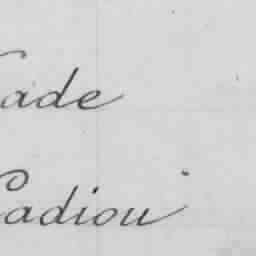 ade
adiou